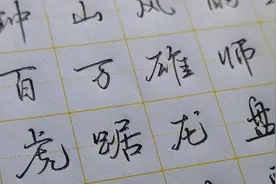 钟山风
百万雄师
虎踞龙盘